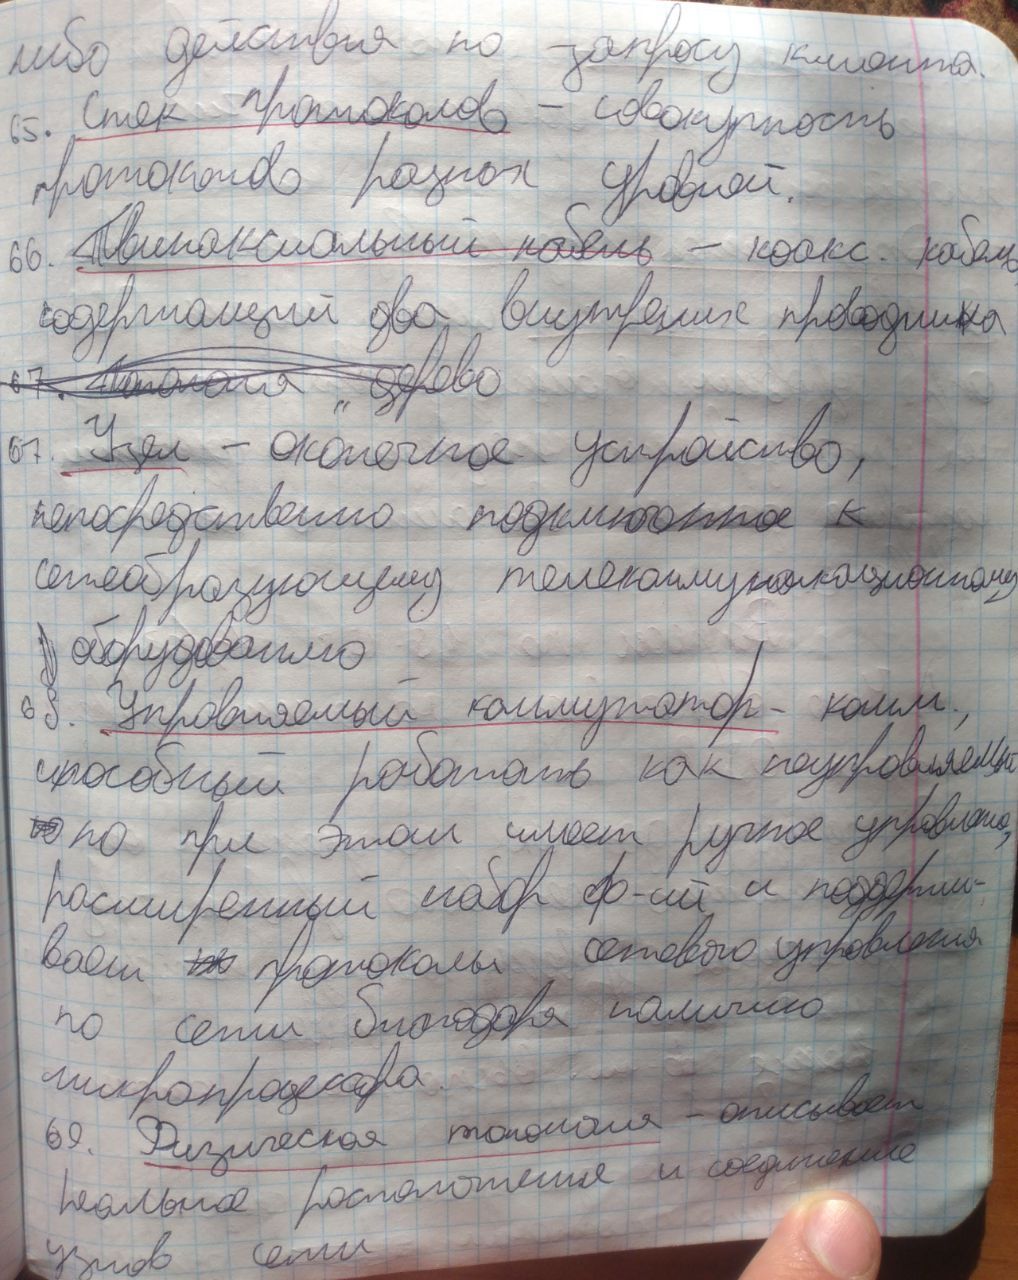 либо действия по запросу клиента.
65. Стек протоколов – совокупность
протоколов разных уровней.
66. Твинаксиальный кабель – коакс. кабель,
содержащий два внутренних проводника
67. Топология "дерево
67. Узел – оконечное устройство,
непосредственно подключенное к
сетеобразующему телекоммуникационному
оборудованию
68. Управляемый коммутатор – комм.,
способный работать как неуправляемый
но при этом имеет ручное управление,
расширенный набор ф-ий и поддержи-
вает протоколы сетевого управления
по сети благодаря наличию
микропроцессора.
69. Физическая топология – описывает
реальное расположение и соединение
узлов сети